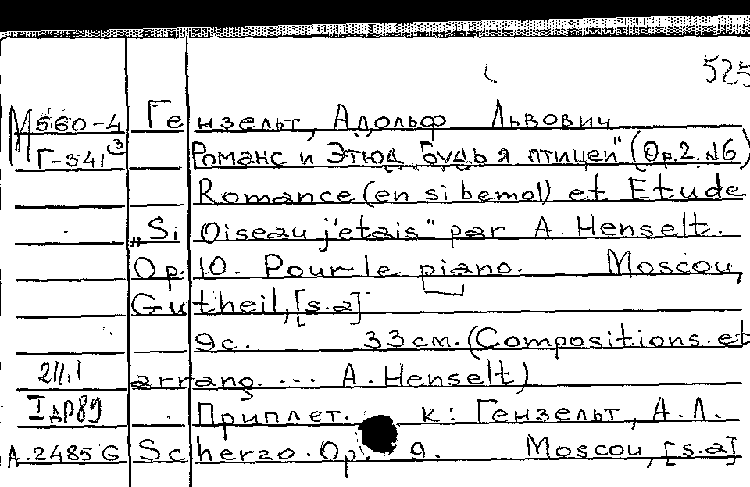 525
М560-4 Гензельт, Адольф Львович
Г-341³ Романс и Этюд "Будь я птицей" (Op.2 №6)
Romance (en si bemol) et Etude
„Si Oiseau j'etais" par A. Henselt.
Op. 10. Pour le piano. Moscou,
Gutheil, [s.a]
9с. 33 см. (Compositions et
arrang. ... A. Henselt)
Приплет. к: Гензельт, А.Л.
A.2485 G Scherzo. Op. 9. Moscou, [s.a]